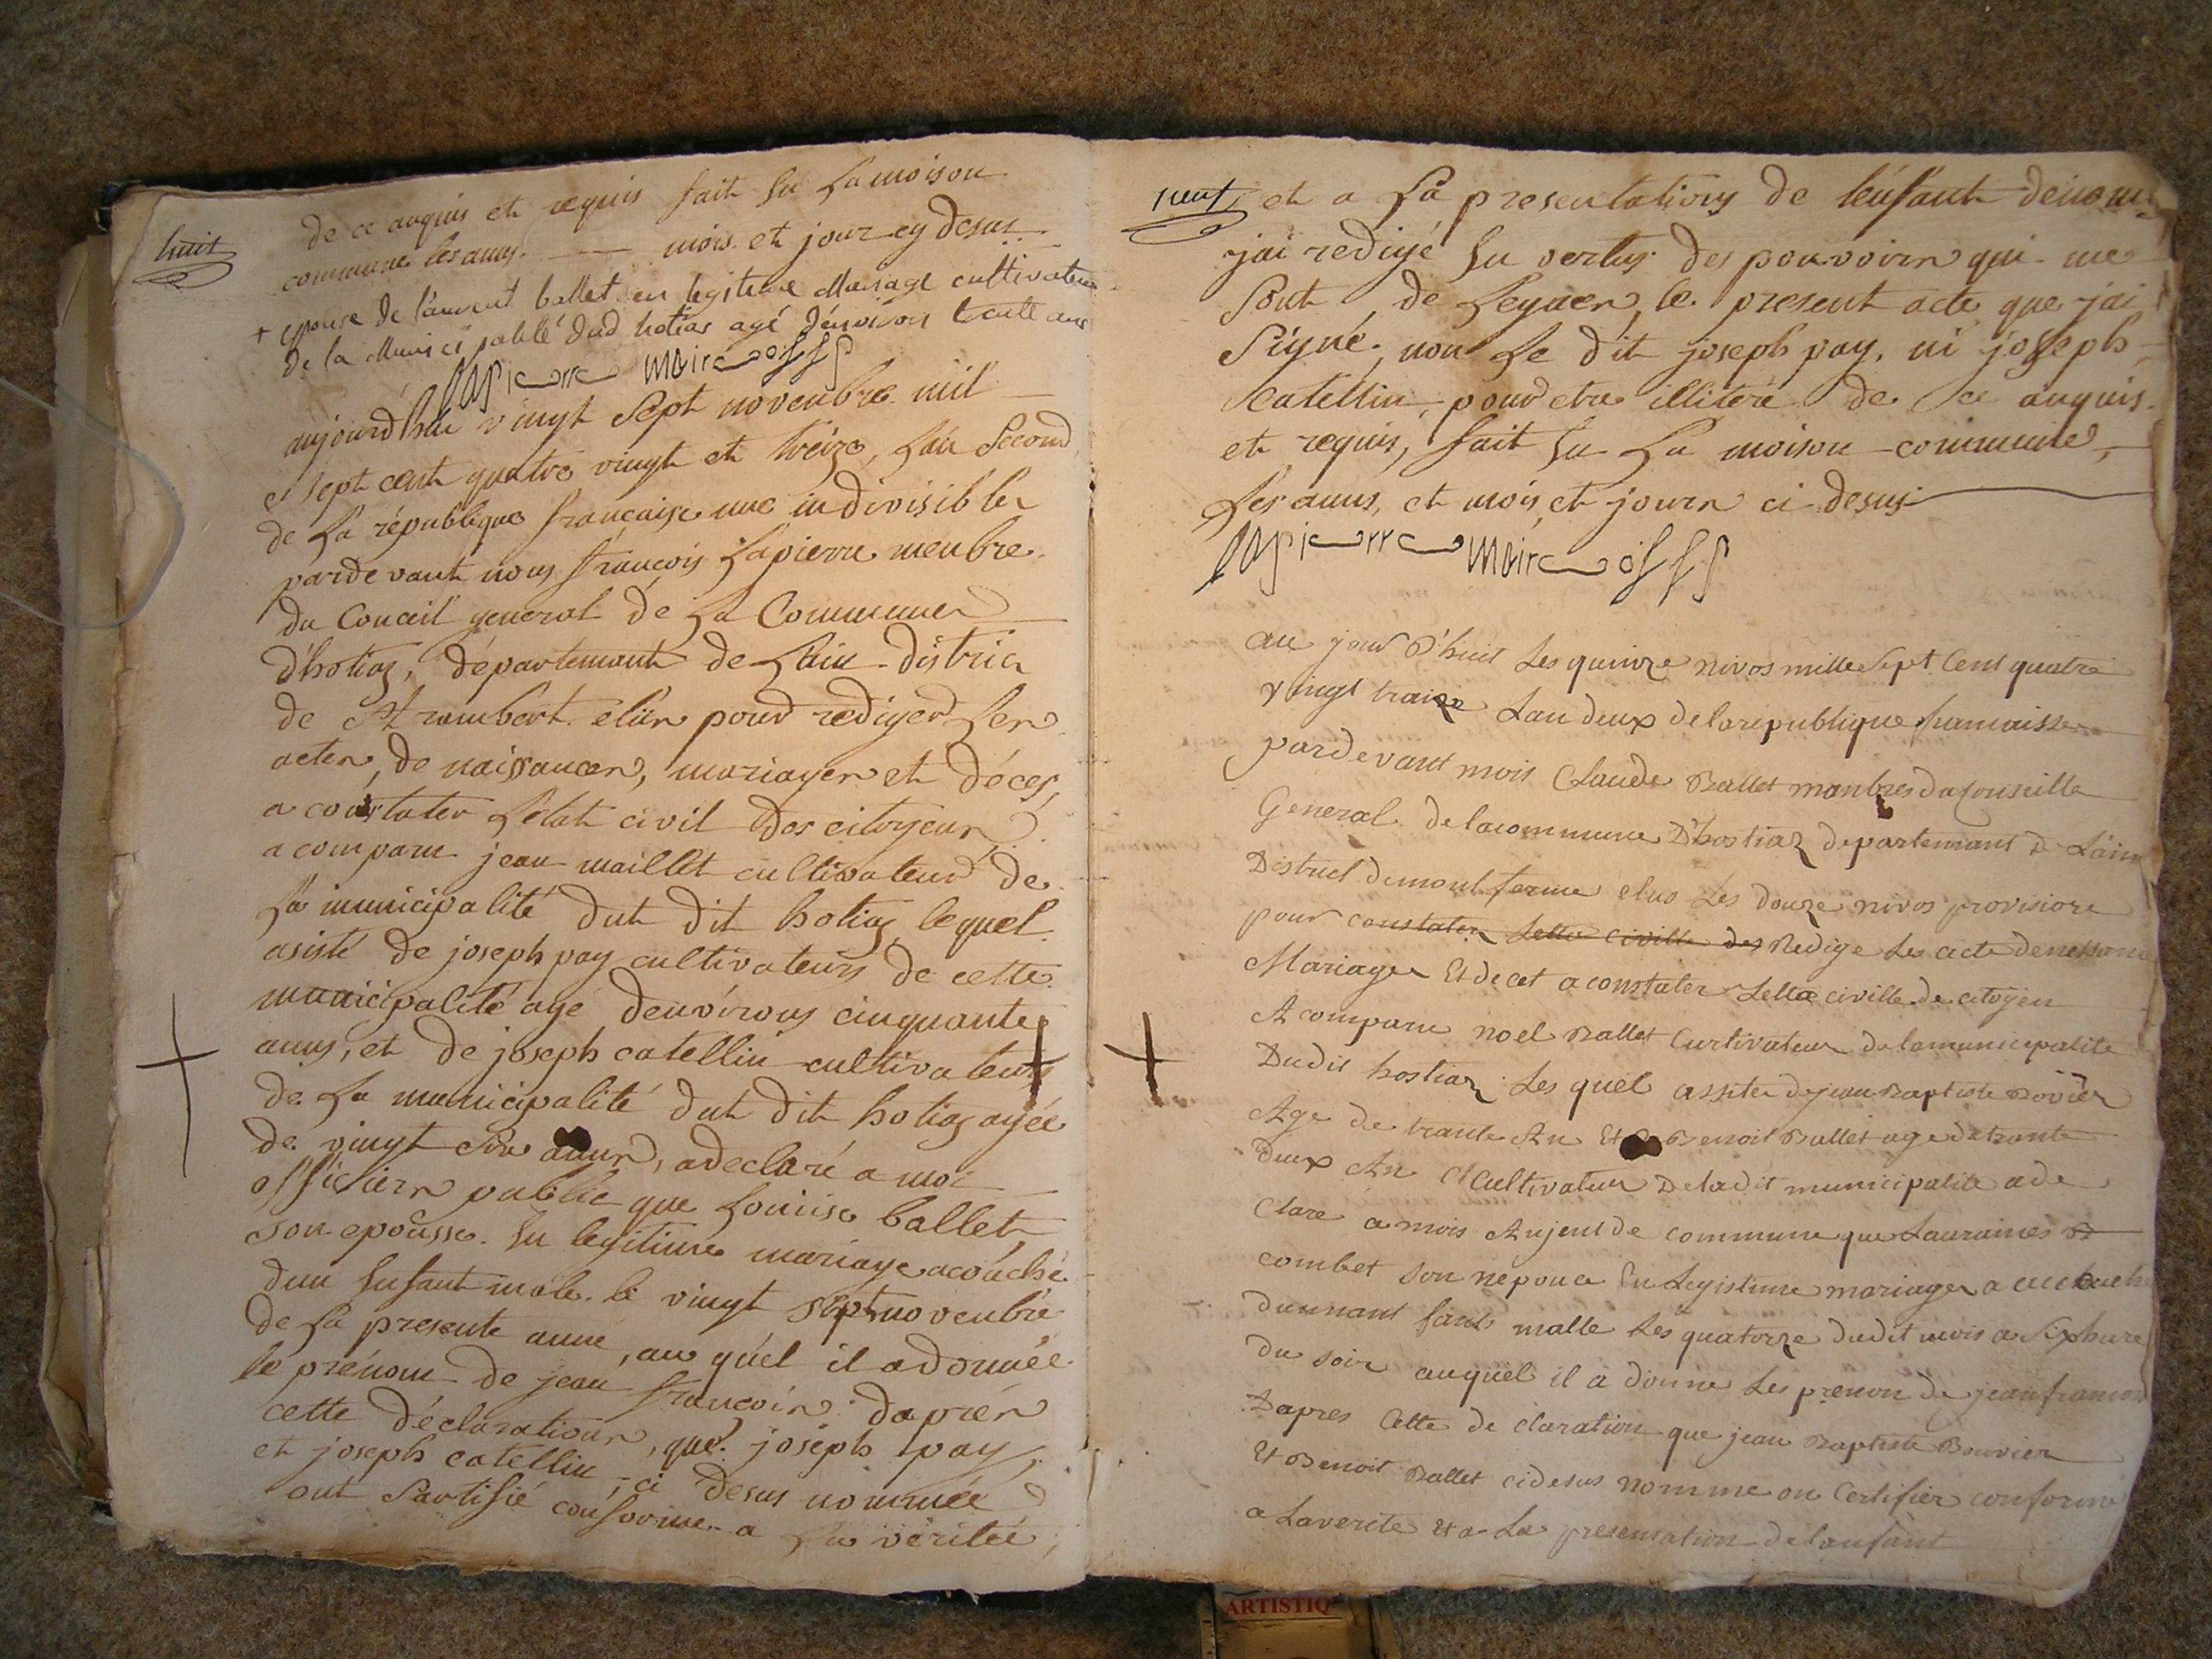 huit
de ce anquis et requis fait en la moison
commune les anns. — mois et jour cy desus
+ epouse de laurent ballet en legiteme Mariage cultivateur
de la Municipalité dud hotias agé d'environ trente ans
lapierre maire off p
aujourd'hui vingt sept novenbre mil
sept cent quatre vingt et treize, lan second
de la république française une indivisible
pardevant nous françois lapierre menbre
du Conceil general de la Commune
d'hotiaz, département de lain district
de St rambert elün pour rediger les
acten, de naissancen, mariagen et déces,
a constater l'etat civil des citoyeur
a comparu jean maillet cultivateur de
la municipalité dut dit hotiaz lequel
asisté de joseph pay cultivateurs de cette
municipalité agé denvirons cinquante
anns, et de joseph catellin cultivateurs
de la municipalité dut dit hotiaz agée
de vingt six annn, a declaré a moi
officiern public que Louise ballet
son epousse en legitime mariage acouché
dun enfant male le vingt sept novenbre
de la presente anné, au quel il a donnée
le prénom de jean françoin daprén
cette déclaration, que joseph pay,
et joseph catellin, ci desus nommée
ont sartifié conforme a la véritée,
neuf
et a la presentations de lenfant dénomé
jai redigé en vertus des pouvoirn qui me
sont de leguer, le present acte que jai
signé, non le dit joseph pay, ni joseph
Catellin, pour etre illitéré de ce anquis
et requis, fait en la moison commune,
les anns, et mois, et journ ci desus
lapierre maire off p
au jour d'huit les quinze nivos mille sept Cent quatre
vingt traize Lan deux de la republique francaisse
pardevant mois Claude Ballet manbres du Conseille
General de la commune D'hostiaz departemant D Lain
District de mont ferme elus Les douze nivos provisiore
pour constater Letta civille des Redige Les acte de nessance
Mariage Et decet a constater Letta civille de citoyen
A comparu noel Ballet Curtivateur de la municipalite
Dudit hostiaz Les quel assiter de jean Baptiste Bovier
Age de trante An Et Benoit Ballet age de trante
deux An Cultivateur De ladit municipalite a de
Clare a mois Anjent de commune que Lauraines B
combet son nepouce En Legistime mariage a accouche
dunnant fants malle Les quatorze dudit mois a six hure
du soir auquel il a donne Les prenon de jean francois
Dapres Cette de claration que jean Baptiste Bouvier
Et Benoit Ballet cidesus nomme on Certifier conforme
a La verite Et a La presentation de lanfant
ARTISTIQ